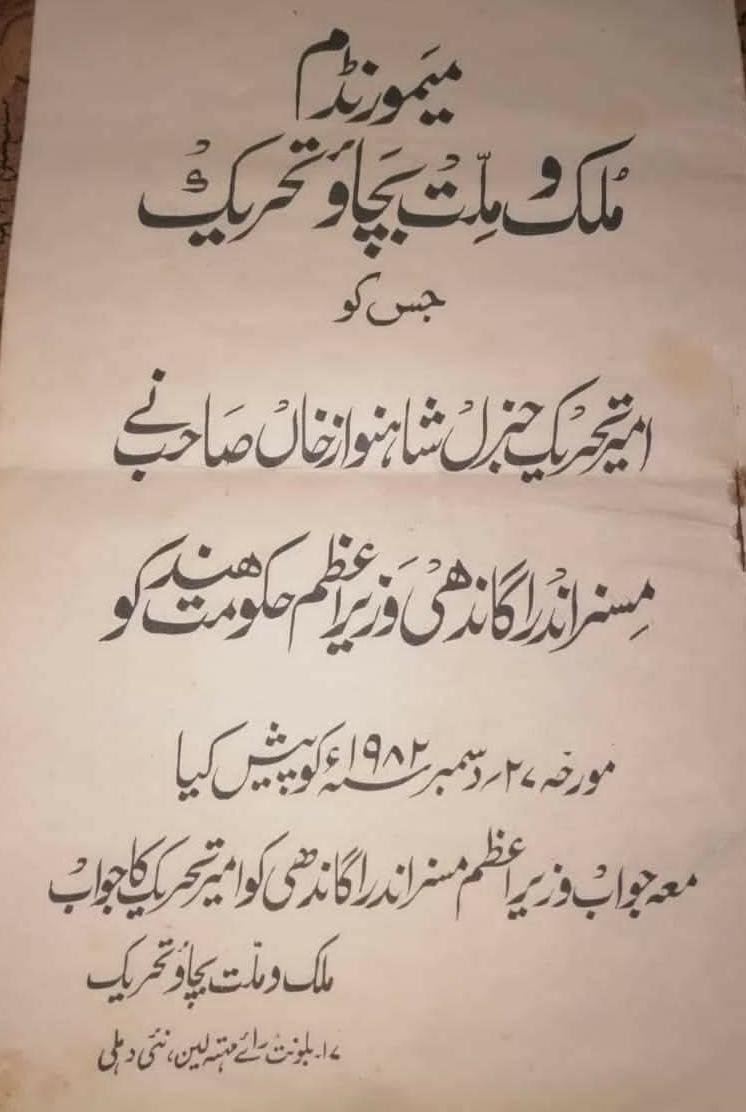 میمورنڈم
مُلک و ملّت بَچاؤ تحریک
جس کو
امیر تحریک جنرل شاہنواز خاں صاحب نے
مِسنر اندرا گاندھی وَزیر اعظم حکومت ھند کو
مورخہ ۲۷؍ دسمبر ۱۹۸۲ء کو پیش کیا
معہ جواب وزیر اعظم مسنر اندرا گاندھی کو امیر تحریک کا جواب
ملک و ملّت بچاؤ تحریک
۱۷۔ بلونت رائے مہتہ لین، نئی دہلی